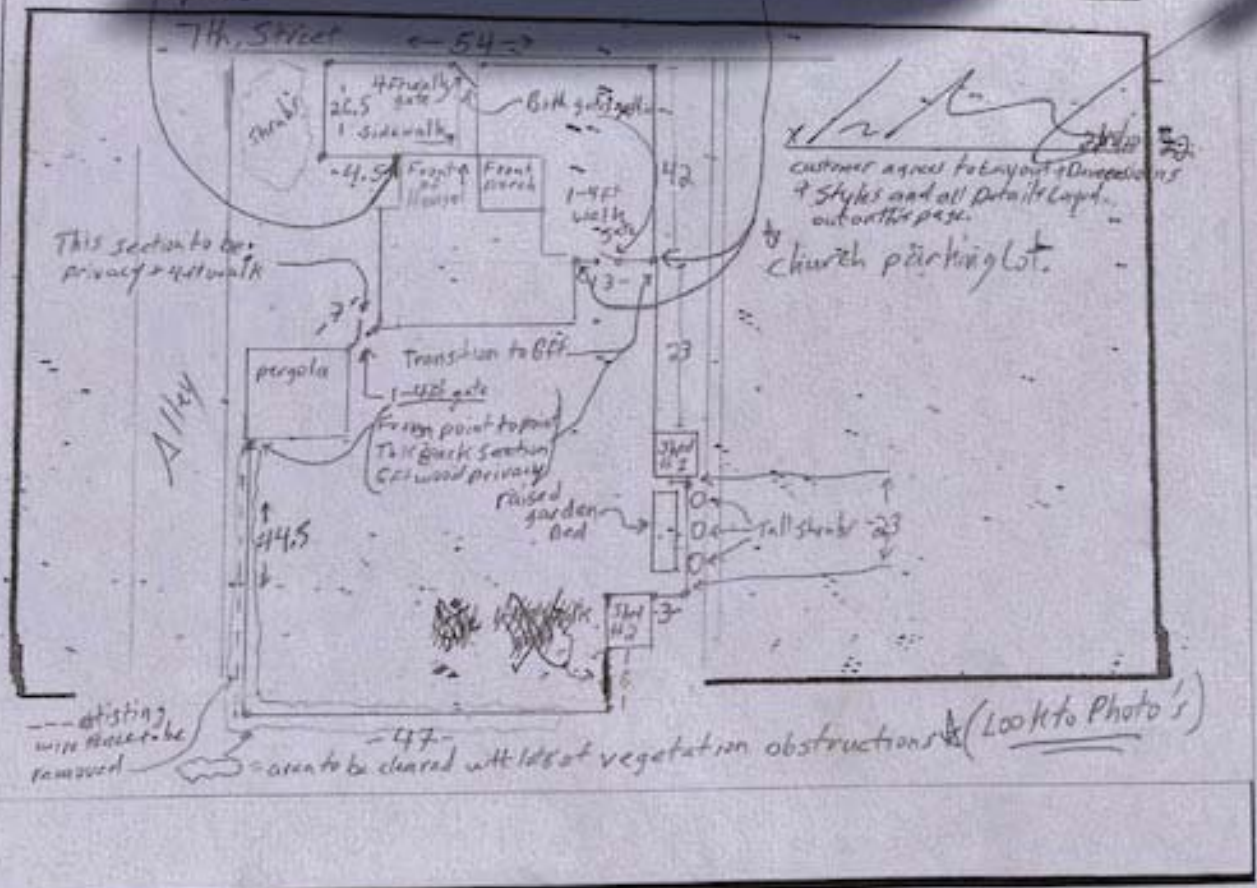 7th, Street
← 54 →
Shrubs
26.5
gate
sidewalk
Both gates
-4.5
Front of House
Front Porch
42
1-4ft walk gate
X
customer agrees to Layout + Dimensions
+ Styles and all Details Layed
out on this page.
church parking Lot.
This section to be
privacy + 4ft walk
7'
13-
pergola
Transition to 6ft
23
1-4ft gate
Alley
From point to point
This Back Section
6ft wood privacy
Shed #1
raised garden Bed
Tall shrubs
23
44.5
Shed #2
-3-
--- existing
wire fence to be
removed
-47-
= area to be cleared with lots of vegetation obstructions (Look to Photo's)